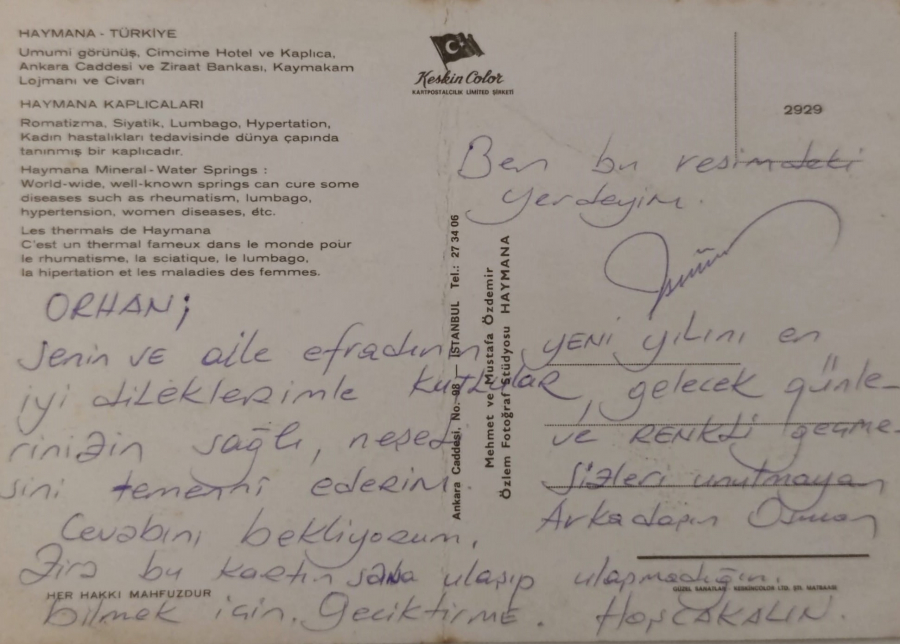 HAYMANA - TÜRKİYE
Umumi görünüş, Cimcime Hotel ve Kaplıca,
Ankara Caddesi ve Ziraat Bankası, Kaymakam
Lojmanı ve Civarı
HAYMANA KAPLICALARI
Romatizma, Siyatik, Lumbago, Hypertation,
Kadın hastalıkları tedavisinde dünya çapında
tanınmış bir kaplıcadır.
Haymana Mineral-Water Springs :
World-wide, well-known springs can cure some
diseases such as rheumatism, lumbago,
hypertension, women diseases, étc.
Les thermals de Haymana
C'est un thermal fameux dans le monde pour
le rhumatisme, la sciatique, le lumbago,
la hipertation et les maladies des femmes.
Keskin Color
KARTPOSTALCILIK LİMİTED ŞİRKETİ
2929
Ben bu resimdeki
yerdeyim.
ORHAN;
Senin ve aile efradının, YENİ yılını en
iyi dileklerimle kutlular, gelecek günle-
rinizin sağlı, neşeli ve RENKLİ geçme-
sini temenni ederim. Sizleri unutmayan
Cevabını bekliyorum. Arkadaşın Osman
Zira bu kartın sana ulaşıp ulaşmadığın.
bilmek için. Geciktirme. HOŞÇAKALIN.
Ankara Caddesi, No. 98 — İSTANBUL Tel.: 27 34 06
Mehmet ve Mustafa Özdemir
Özlem Fotoğraf Stüdyosu HAYMANA
HER HAKKI MAHFUZDUR
GÜZEL SANATLAR KESKİNCOLOR LTD. ŞTİ. MATBAASI